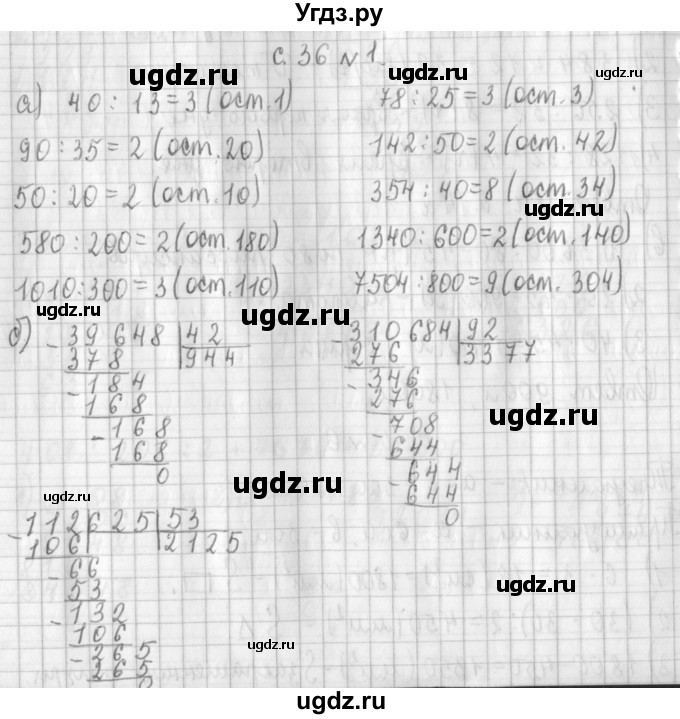 Угдз.ру
с. 36 № 1.
а) 40 : 13 = 3 (ост. 1)
78 : 25 = 3 (ост. 3)
90 : 35 = 2 (ост. 20)
142 : 50 = 2 (ост. 42)
50 : 20 = 2 (ост. 10)
354 : 40 = 8 (ост. 34)
580 : 200 = 2 (ост. 180)
1340 : 600 = 2 (ост. 140)
1010 : 300 = 3 (ост. 110)
7504 : 800 = 9 (ост. 304)
б) - 39648 | 42
378 | 944
- 184
168
- 168
168
0
- 310684 | 92
276 | 3377
- 346
276
- 708
644
- 644
644
0
- 112625 | 53
106 | 2125
- 66
53
- 132
106
- 265
265
0
ugdz.ru
ugdz.ru
ugdz.ru
ugdz.ru
ugdz.ru
ugdz.ru
ugdz.ru
ugdz.ru
ugdz.ru
ugdz.ru
ugdz.ru
ugdz.ru
ugdz.ru